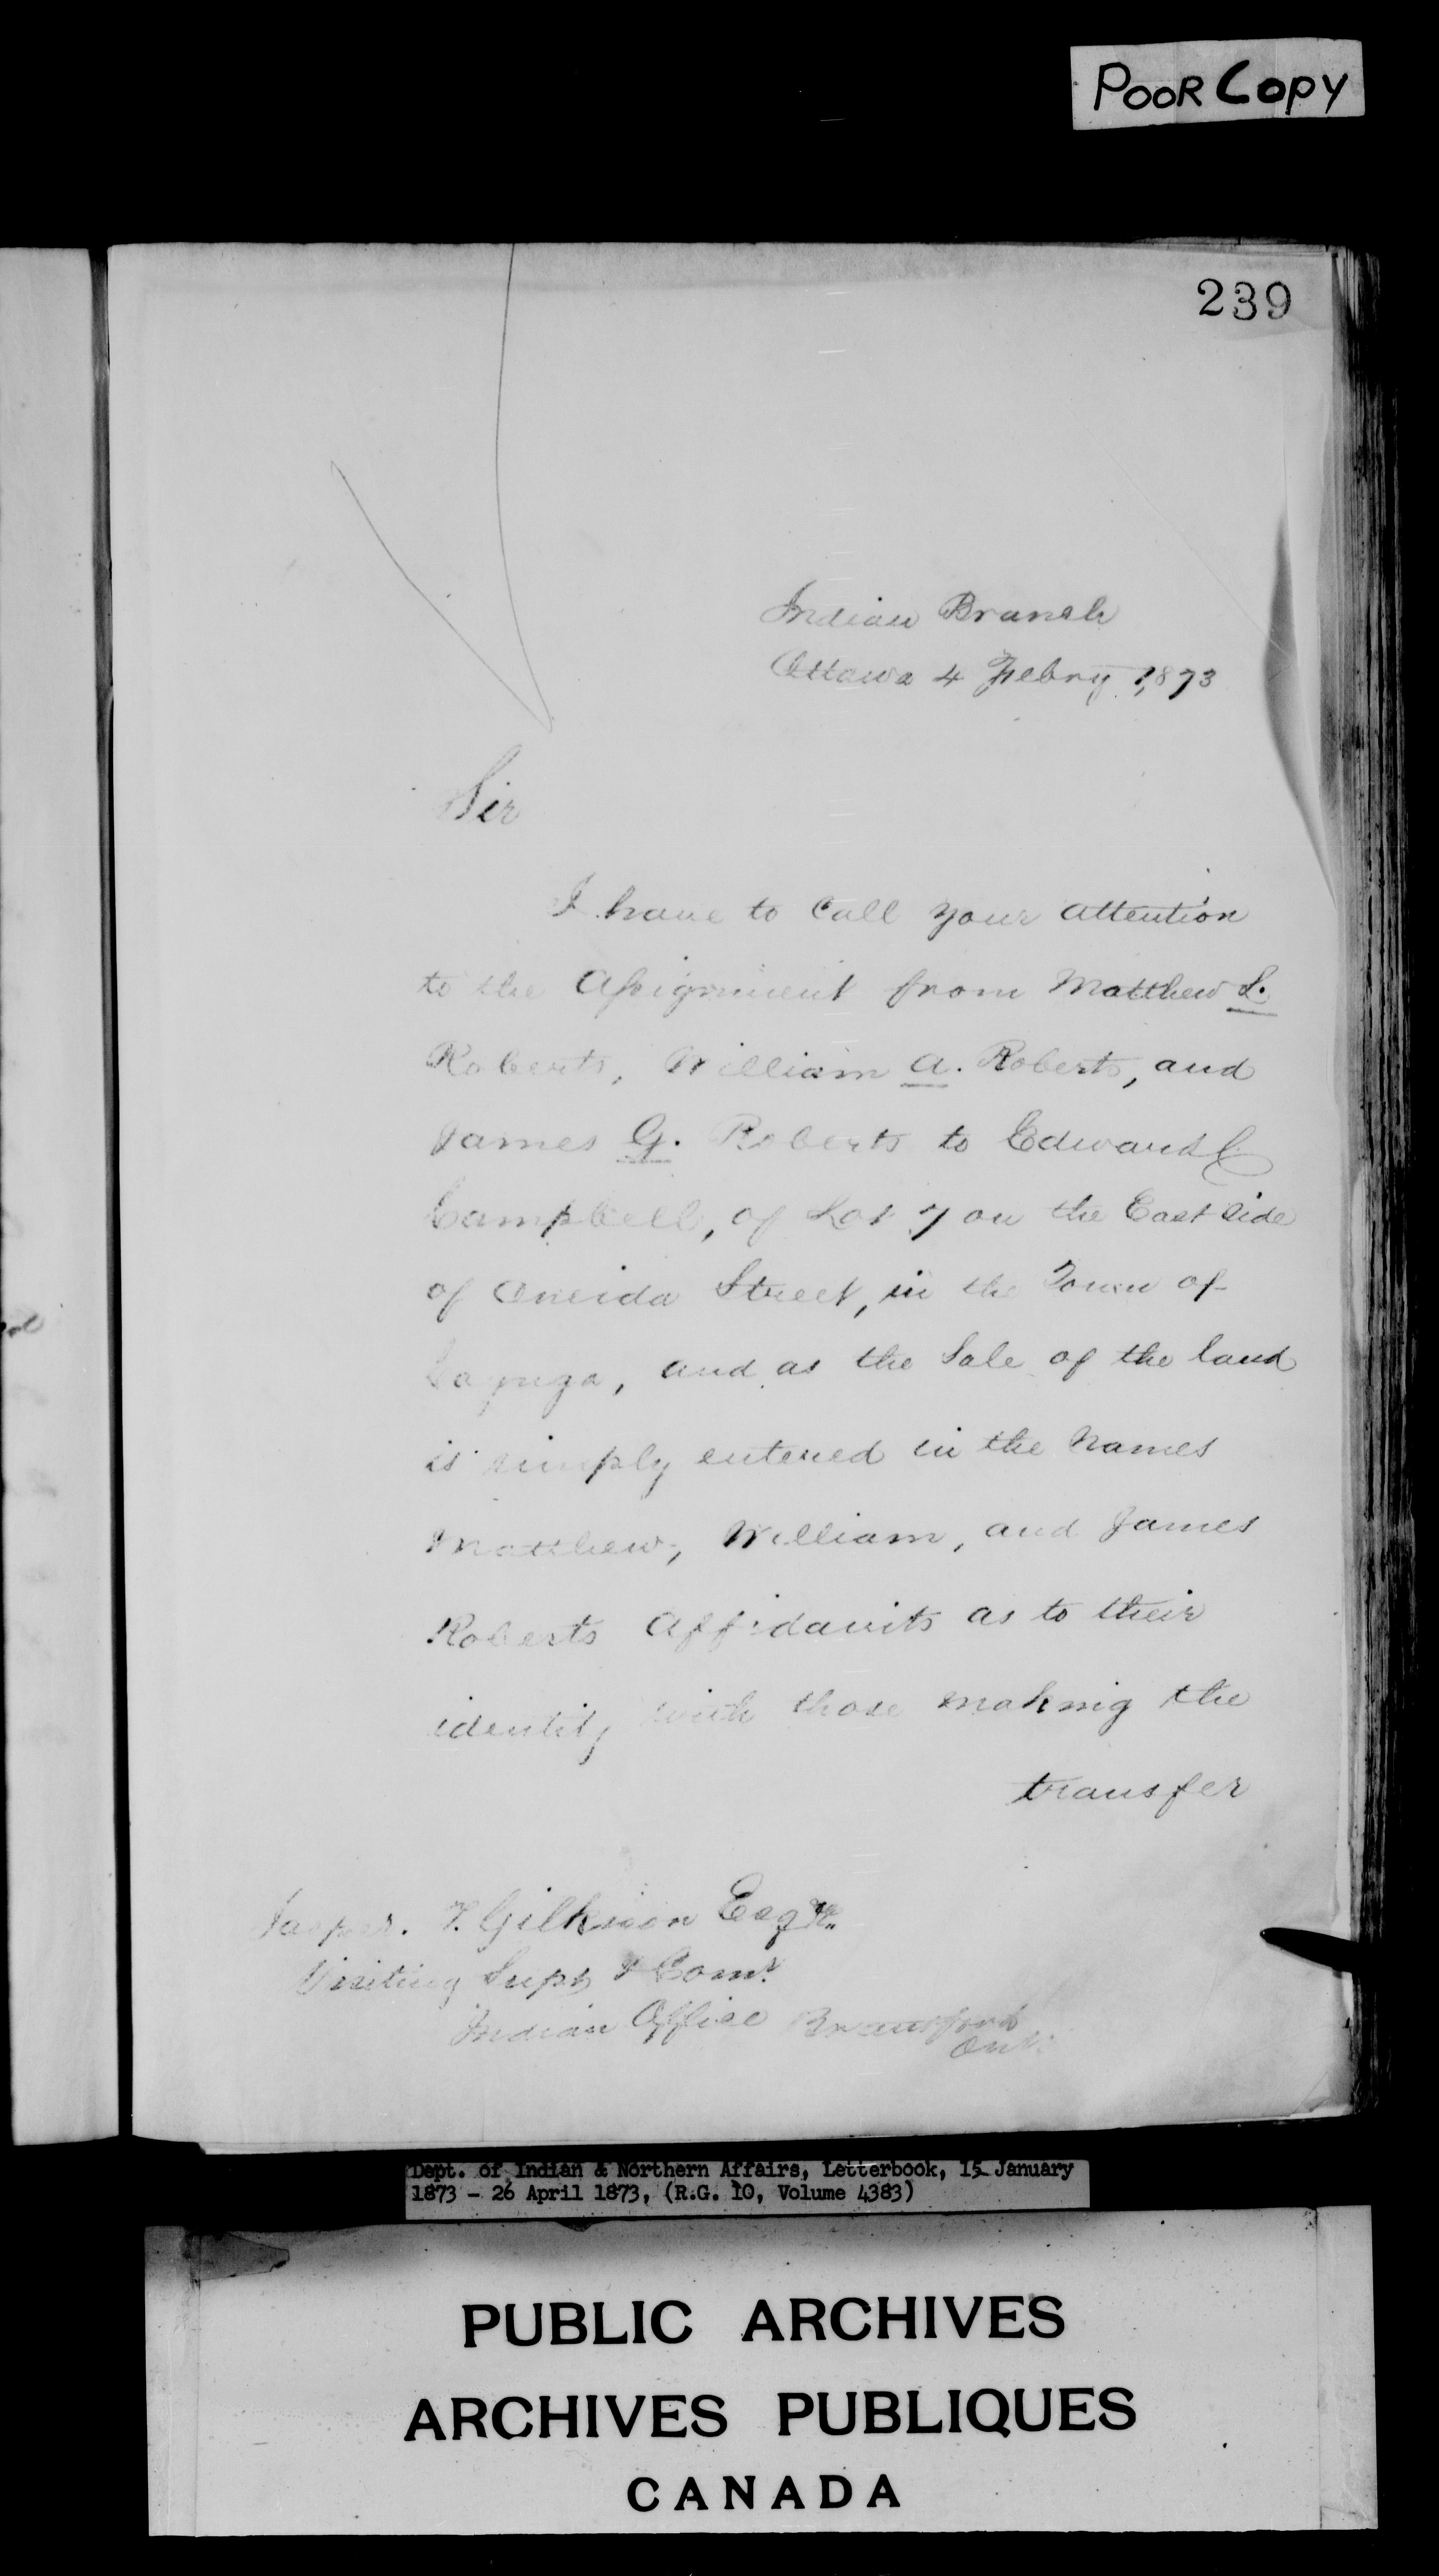 POOR COPY
239
Indian Branch
Ottawa 4 Febry 1873
Sir
I have to call your attention
to the Assignment from Matthew S.
Roberts, William A. Roberts, and
James G. Roberts to Edward C.
Campbell, of Lot 7 on the East side
of Oneida Street, in the Town of
Cayuga, and as the Sale of the land
is simply entered in the names
Matthew, William, and James
Roberts Affidavits as to their
identity with those making the
transfer
Jasper. T. Gilkison Esqre.
Visiting Supt & Comr.
Indian Office Brantford
Ont.
Dept. of Indian & Northern Affairs, Letterbook, 15 January
1873 - 26 April 1873, (R.G. 10, Volume 4383)
PUBLIC ARCHIVES
ARCHIVES PUBLIQUES
CANADA